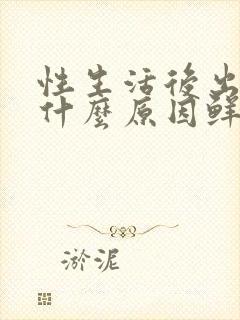 性生活後出
什麼原因鲜
淤泥